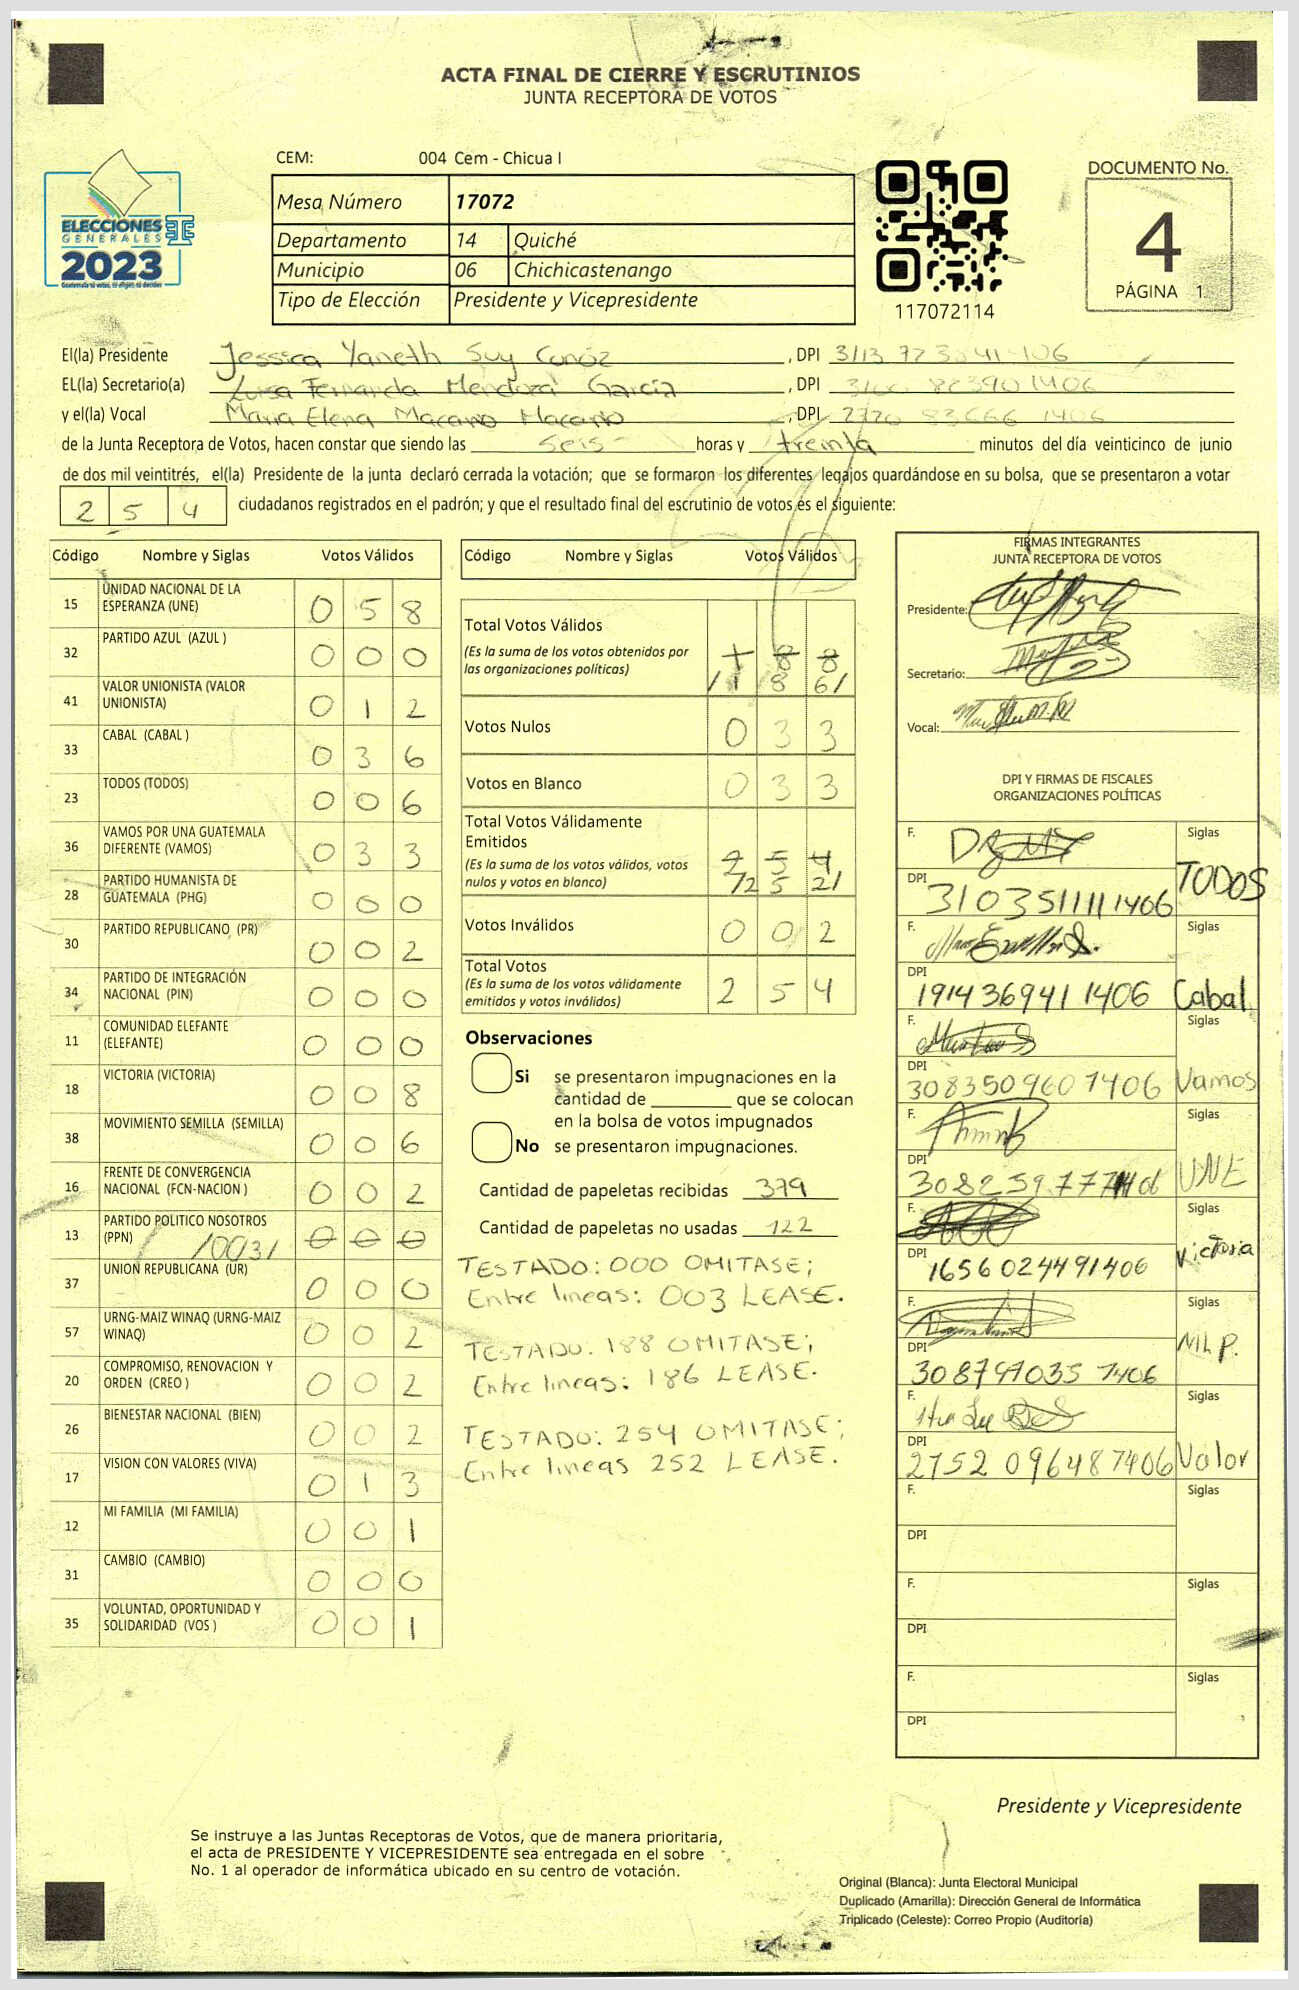 ACTA FINAL DE CIERRE Y ESCRUTINIOS
JUNTA RECEPTORA DE VOTOS
CEM: 004 Cem - Chicua I
Mesa Número 17072
Departamento 14 Quiché
Municipio 06 Chichicastenango
Tipo de Elección Presidente y Vicepresidente
ELECCIONES
GENERALES
2023
Guatemala tú votas, tú eliges, tú decides
117072114
DOCUMENTO No.
4
PÁGINA 1
El(la) Presidente Jessica Yaneth Suy , DPI
EL(la) Secretario(a) Luisa Fernanda Mendoza García , DPI
y el(la) Vocal Maria Elena Macario Macario , DPI
de la Junta Receptora de Votos, hacen constar que siendo las seis horas y treinta minutos del día veinticinco de junio
de dos mil veintitrés, el(la) Presidente de la junta declaró cerrada la votación; que se formaron los diferentes legajos guardándose en su bolsa, que se presentaron a votar
2 5 4 ciudadanos registrados en el padrón; y que el resultado final del escrutinio de votos es el siguiente:
Código Nombre y Siglas Votos Válidos
15 UNIDAD NACIONAL DE LA
ESPERANZA (UNE) 0 5 8
32 PARTIDO AZUL (AZUL ) 0 0 0
41 VALOR UNIONISTA (VALOR
UNIONISTA) 0 1 2
33 CABAL (CABAL ) 0 3 6
23 TODOS (TODOS) 0 0 6
36 VAMOS POR UNA GUATEMALA
DIFERENTE (VAMOS) 0 3 3
28 PARTIDO HUMANISTA DE
GUATEMALA (PHG) 0 0 0
30 PARTIDO REPUBLICANO (PR) 0 0 2
34 PARTIDO DE INTEGRACIÓN
NACIONAL (PIN) 0 0 0
11 COMUNIDAD ELEFANTE
(ELEFANTE) 0 0 0
18 VICTORIA (VICTORIA) 0 0 8
38 MOVIMIENTO SEMILLA (SEMILLA) 0 0 6
16 FRENTE DE CONVERGENCIA
NACIONAL (FCN-NACION ) 0 0 2
13 PARTIDO POLITICO NOSOTROS
(PPN) /003/ 0 0 0
37 UNION REPUBLICANA (UR) 0 0 0
57 URNG-MAIZ WINAQ (URNG-MAIZ
WINAQ) 0 0 2
20 COMPROMISO, RENOVACION Y
ORDEN (CREO ) 0 0 2
26 BIENESTAR NACIONAL (BIEN) 0 0 2
17 VISION CON VALORES (VIVA) 0 1 3
12 MI FAMILIA (MI FAMILIA) 0 0 1
31 CAMBIO (CAMBIO) 0 0 0
35 VOLUNTAD, OPORTUNIDAD Y
SOLIDARIDAD (VOS ) 0 0 1
Código Nombre y Siglas Votos Válidos
Total Votos Válidos
(Es la suma de los votos obtenidos por
las organizaciones políticas) 1 8 8
/1 8 6/
Votos Nulos 0 3 3
Votos en Blanco 0 3 3
Total Votos Válidamente
Emitidos
(Es la suma de los votos válidos, votos
nulos y votos en blanco) 2 5 4
/2 5 2/
Votos Inválidos 0 0 2
Total Votos
(Es la suma de los votos válidamente
emitidos y votos inválidos) 2 5 4
Observaciones
Si se presentaron impugnaciones en la
cantidad de ________ que se colocan
en la bolsa de votos impugnados
No se presentaron impugnaciones.
Cantidad de papeletas recibidas 379
Cantidad de papeletas no usadas 122
TESTADO: 000 OMITASE;
Entre lineas: 003 LEASE.
TESTADO: 188 OMITASE;
Entre lineas: 186 LEASE.
TESTADO: 254 OMITASE;
Entre lineas 252 LEASE.
FIRMAS INTEGRANTES
JUNTA RECEPTORA DE VOTOS
Presidente:
Secretario:
Vocal:
DPI Y FIRMAS DE FISCALES
ORGANIZACIONES POLÍTICAS
F. Siglas
DPI 3103511111406 TODOS
F. Siglas
DPI 1914369411406 Cabal
F. Siglas
DPI 3083509601406 Vamos
F. Siglas
DPI UNE
F. Siglas
DPI 1656024491406 Victoria
F. Siglas
DPI 3087970351406 MLP.
F. Siglas
DPI 2752096481406 Valor
F. Siglas
DPI
F. Siglas
DPI
F. Siglas
DPI
Presidente y Vicepresidente
Se instruye a las Juntas Receptoras de Votos, que de manera prioritaria,
el acta de PRESIDENTE Y VICEPRESIDENTE sea entregada en el sobre
No. 1 al operador de informática ubicado en su centro de votación.
Original (Blanca): Junta Electoral Municipal
Duplicado (Amarilla): Dirección General de Informática
Triplicado (Celeste): Correo Propio (Auditoría)